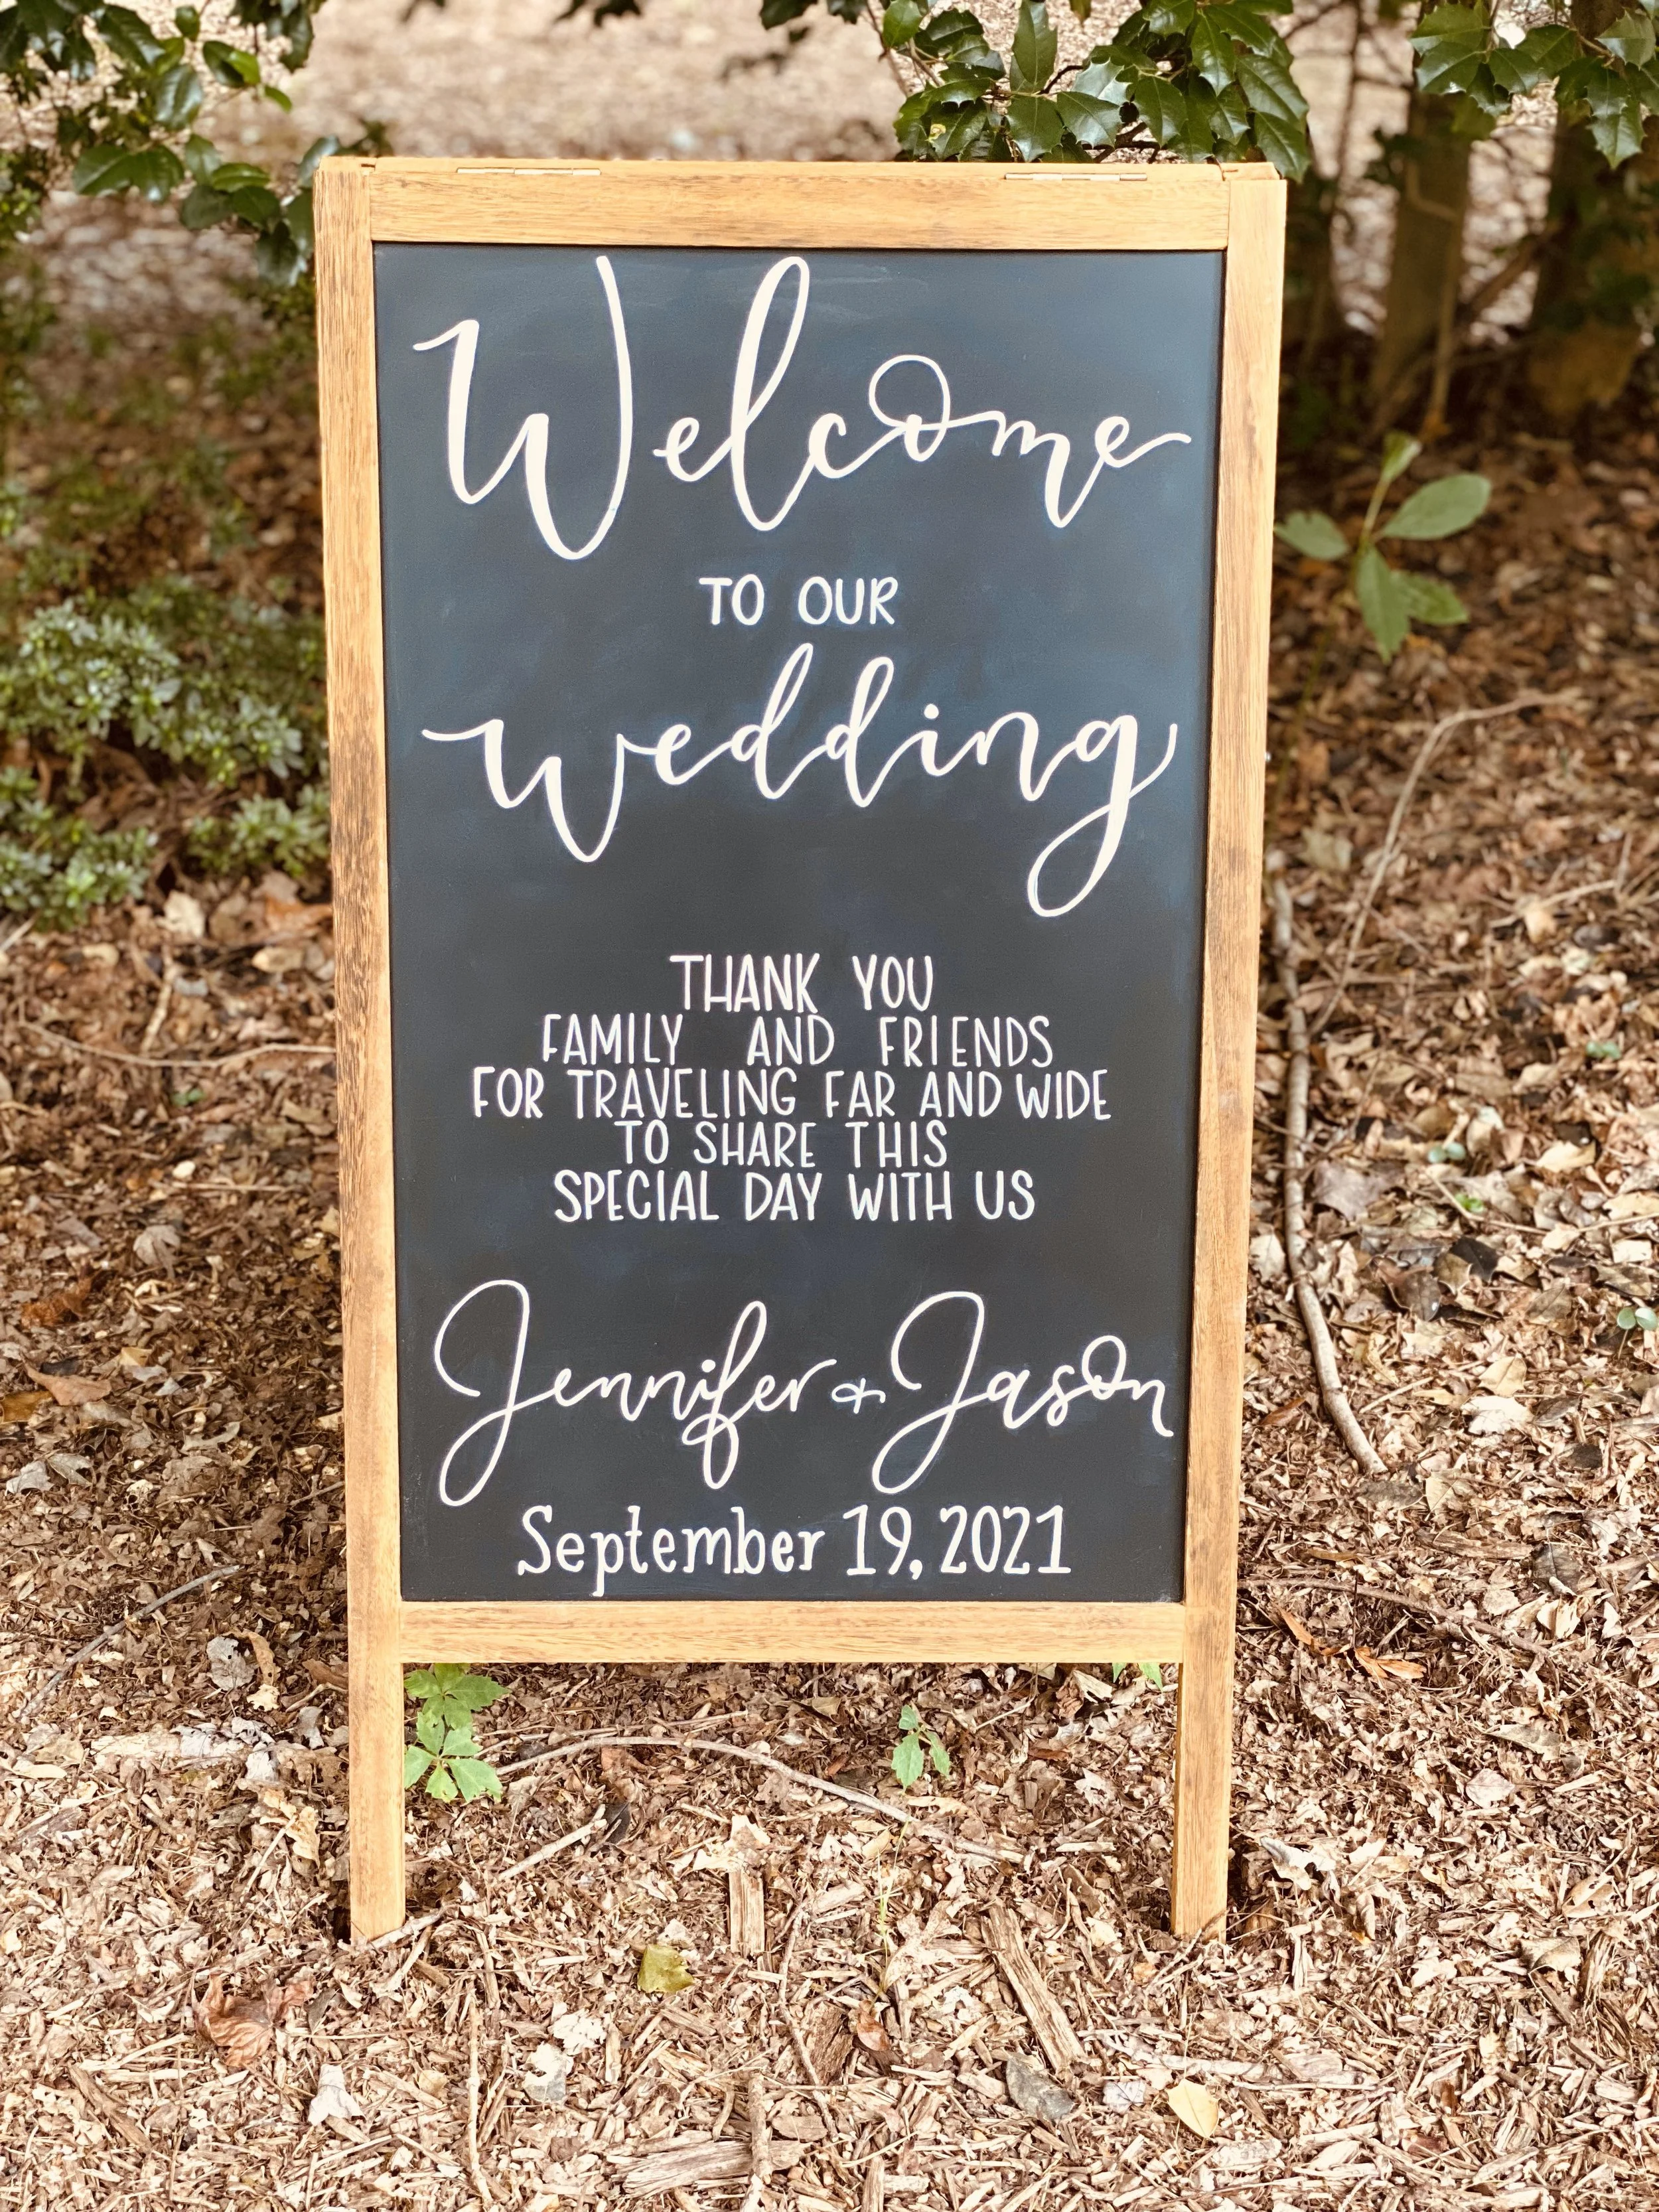 Welcome
TO OUR
wedding
THANK YOU
FAMILY AND FRIENDS
FOR TRAVELING FAR AND WIDE
TO SHARE THIS
SPECIAL DAY WITH US
Jennifer + Jason
September 19, 2021